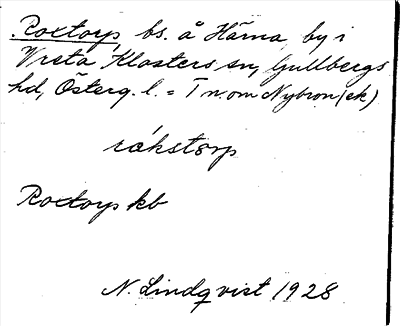 Roxtorp, bs. å Härna, by i
Vreta Klosters sn, Gullbergs
hd, Österg. l. = T n. om Nybron (ek)
råkstorp
Roxtorp kb
N. Lindqvist 1928